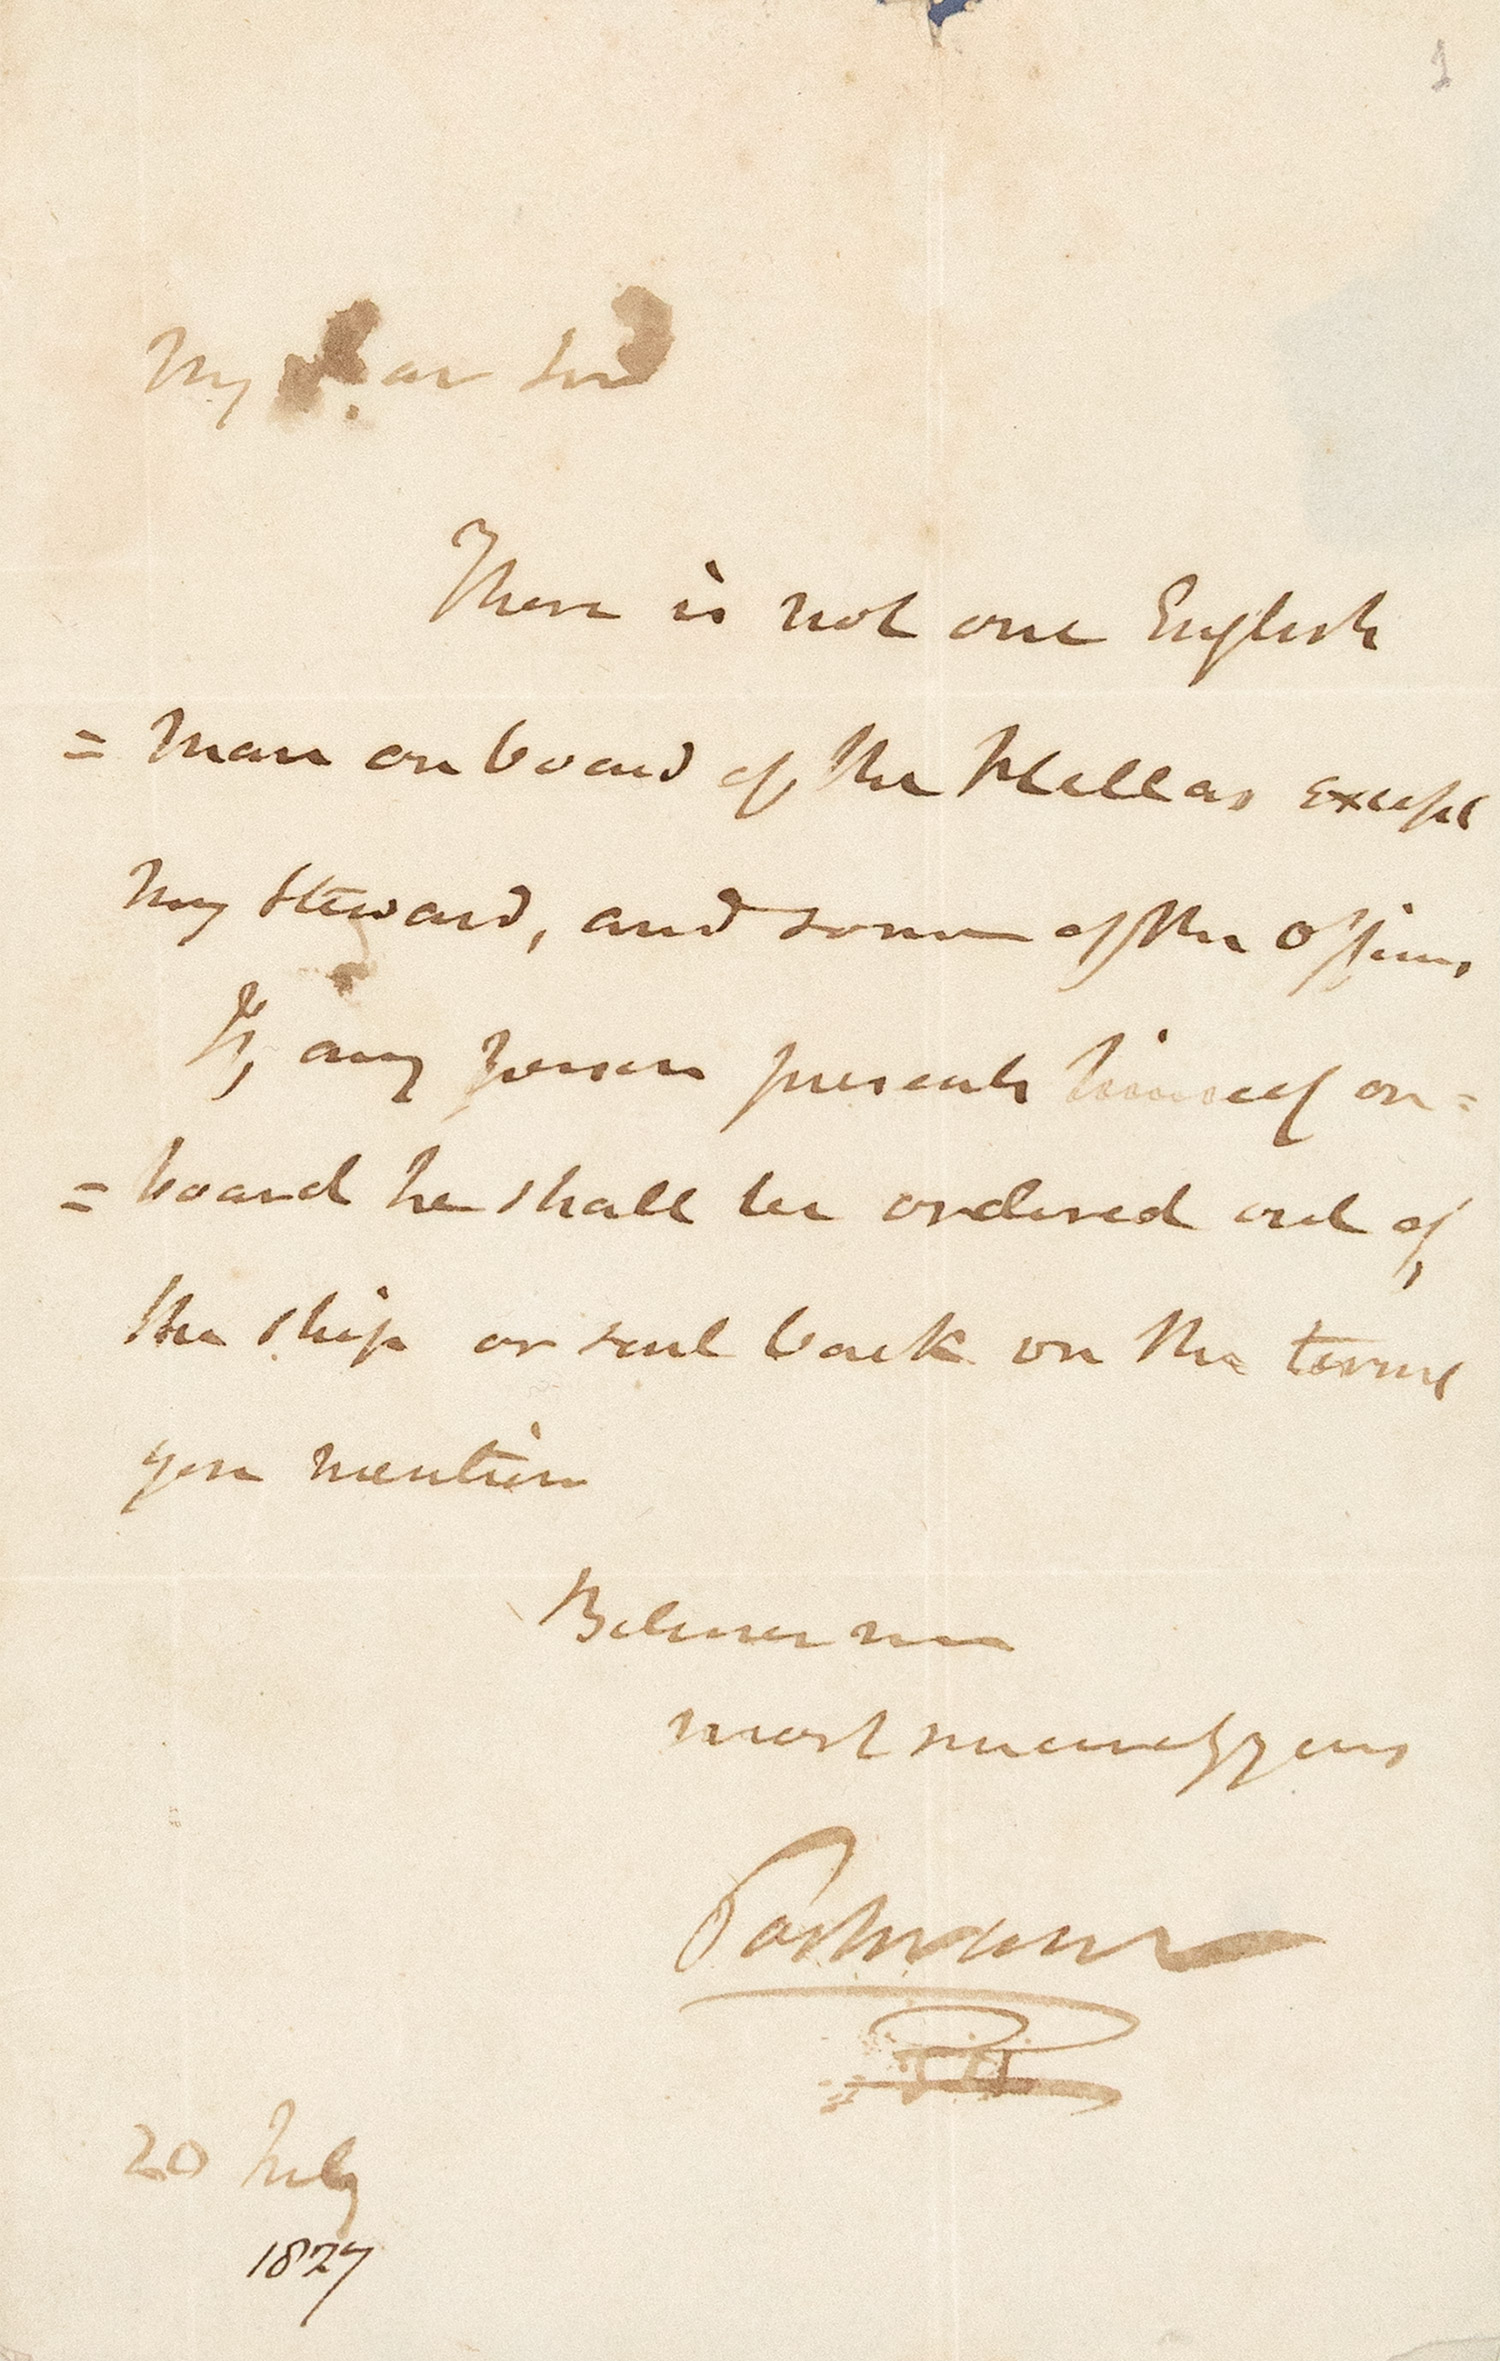 1
My Dear Sir
There is not one English
= man on board of the Hellas except
my Steward, and some of the officers,
If any person presents himself on =
= board he shall be ordered out of
the ship or sent back on the terms
you mention
Believe me
most sincerely yours
20 July
1827